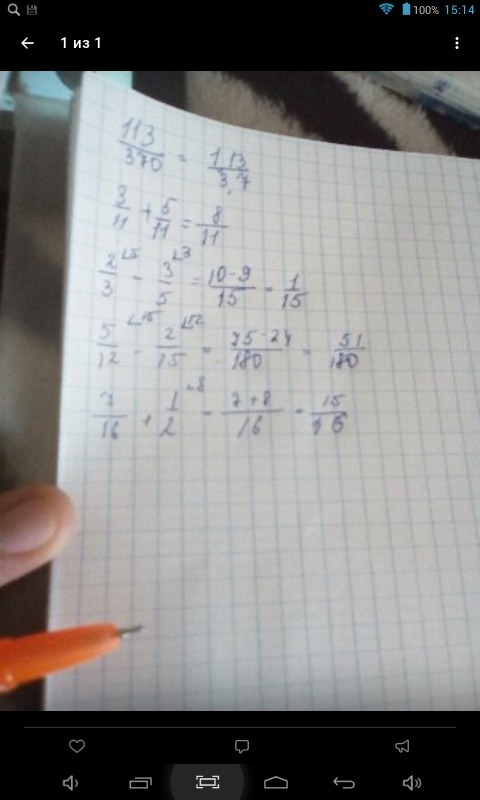 100% 15:14
1 из 1
113/370 = 1,13/3,7
3/11 + 5/11 = 8/11
2/3 ∟5 - 3/5 ∟3 = 10-9/15 = 1/15
5/12 ∟15 - 2/15 ∟12 = 75-24/180 = 51/180
7/16 + 1/2 ∟8 = 7+8/16 = 15/16